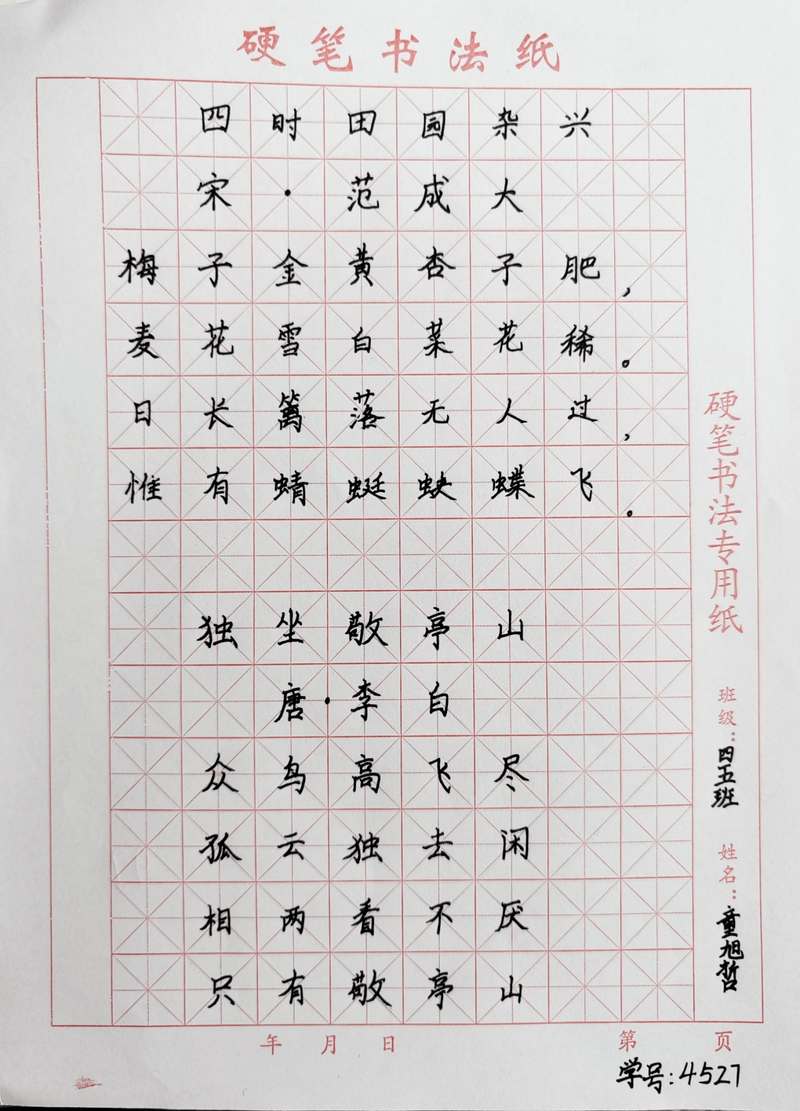 硬笔书法纸
四时田园杂兴
宋·范成大
梅子金黄杏子肥,
麦花雪白菜花稀。
日长篱落无人过,
惟有蜻蜓蛱蝶飞。
独坐敬亭山
唐·李白
众鸟高飞尽
孤云独去闲
相两看不厌
只有敬亭山
硬笔书法专用纸
班级:四五班
姓名:童旭哲
年 月 日
第 页
学号:4527